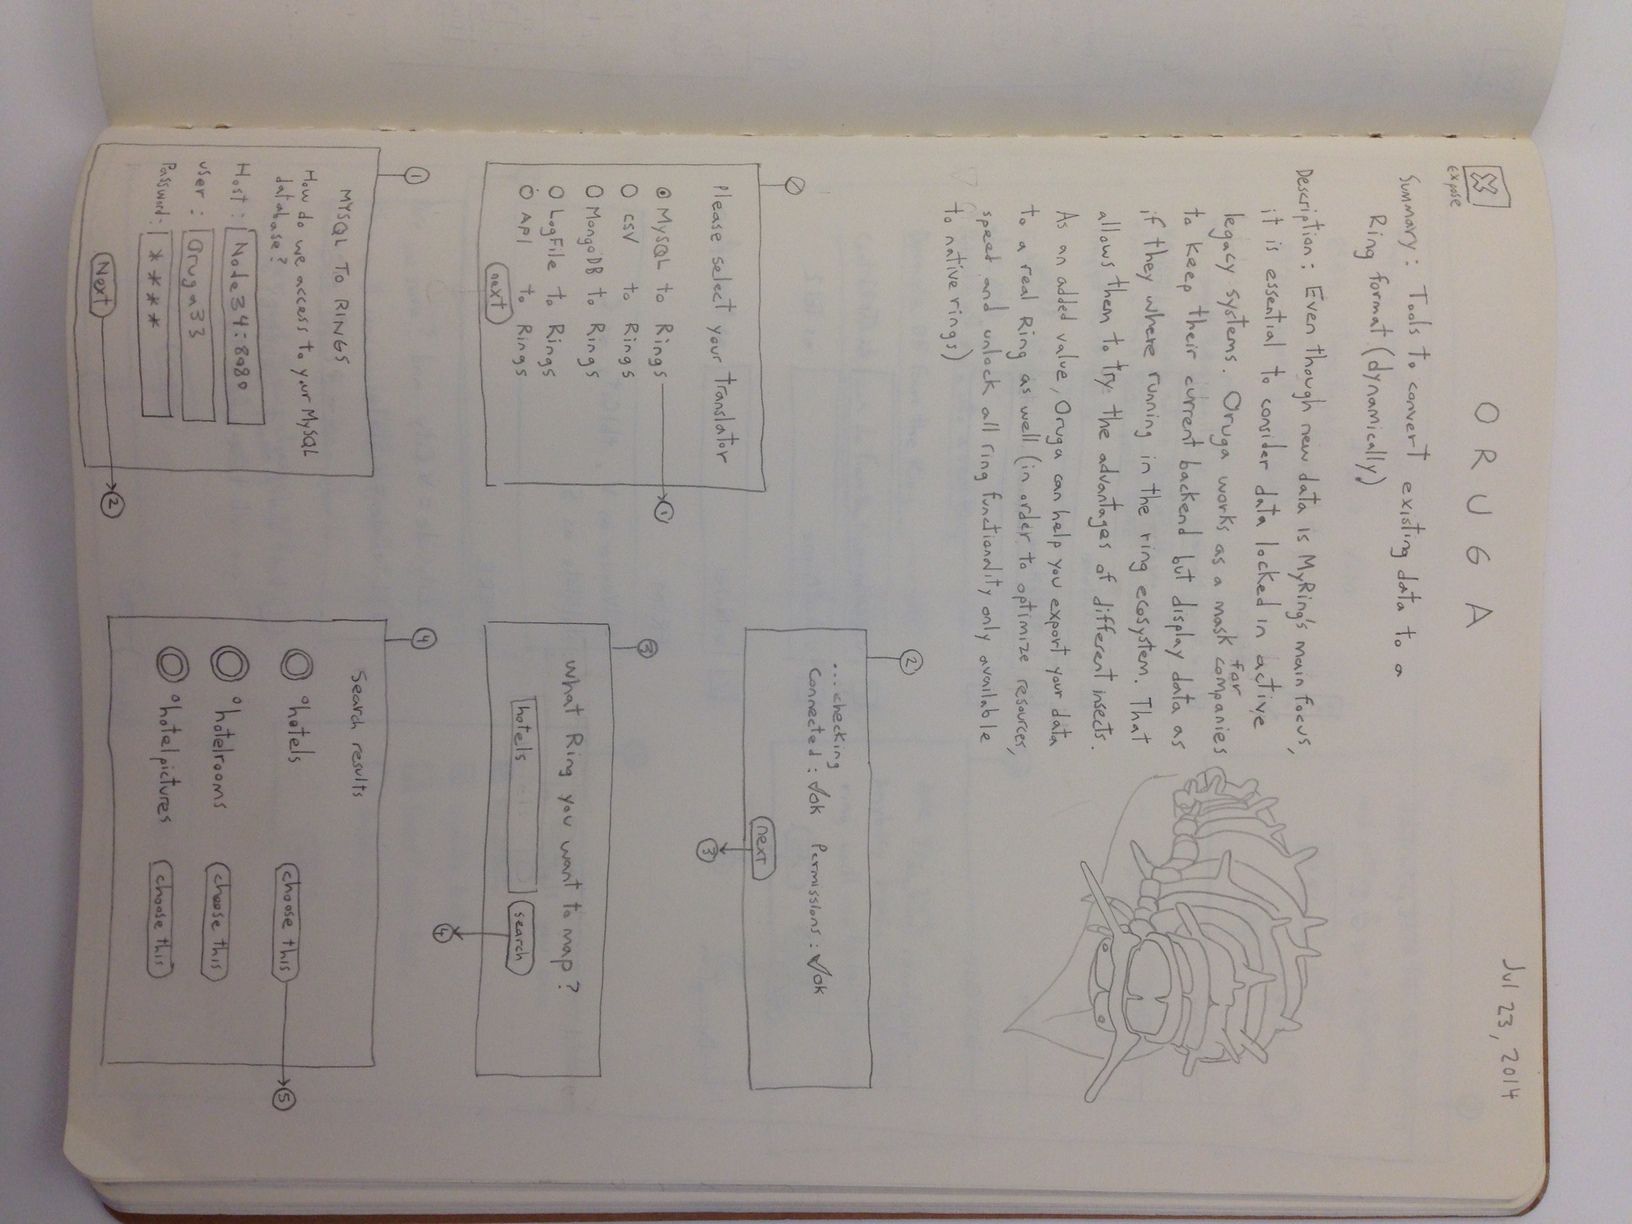 Jul 23, 2014
expose
ORUGA
Summary: Tools to convert existing data to a
Ring format (dynamically)
Description: Even though new data is MyRing's main focus,
it is essential to consider data locked in active
legacy systems. Oruga works as a mask for companies
to keep their current backend but display data as
if they where running in the ring ecosystem. That
allows them to try the advantages of different insects.
As an added value, Oruga can help you export your data
to a real Ring as well (in order to optimize resources,
speed and unlock all ring functionality only available
to native rings)
0
Please select your Translator
MySQL to Rings
1
CSV to Rings
MongoDB to Rings
LogFile to Rings
API to Rings
next
1
MYSQL TO RINGS
How do we access to your MySQL
database?
Host: Node34:8080
user: Oruga33
Password: ****
Next
2
2
...checking
Connected: √OK Permissions: √OK
next
3
3
What Ring you want to map?
hotels search
4
4
Search results
°hotels choose this
5
°hotelrooms choose this
°hotelpictures choose this